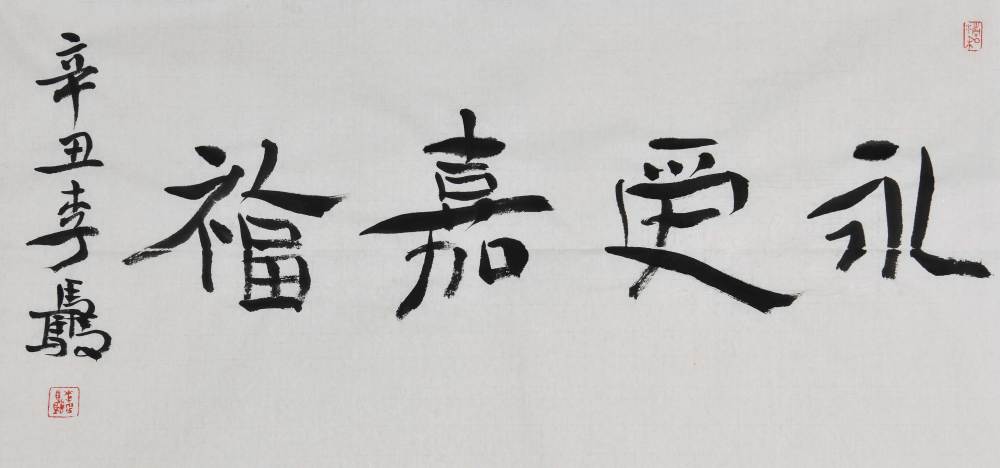 永受嘉福
辛丑李驫